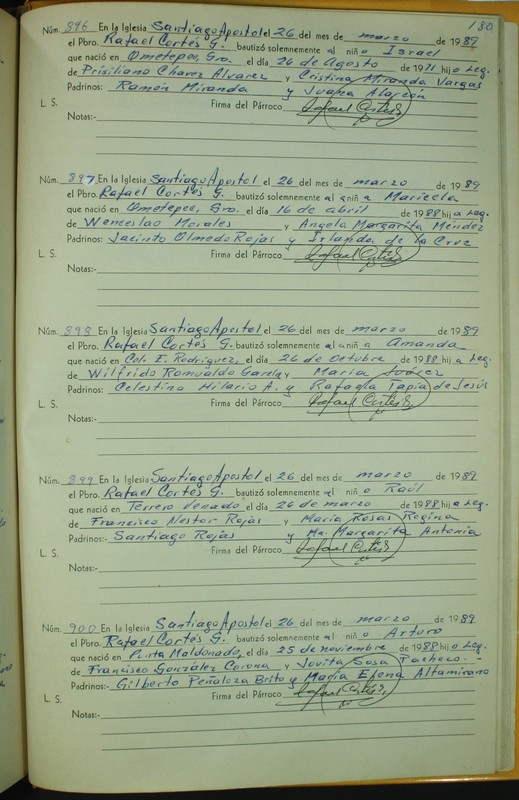 180
Núm. 896 En la Iglesia Santiago Apostol el 26 del mes de marzo de 1989
el Pbro. Rafael Cortés G. bautizó solemnemente al niño Israel
que nació en Ometepec, Gro. el día 26 de Agosto de 1971 hijo Leg.
de Prisiliano Chávez Alvarez y Cristina Miranda Vargas
Padrinos: Ramón Miranda y Juana Alarcón
L. S. Firma del Párroco Rafael Cortés G.
Notas:-
Núm. 897 En la Iglesia Santiago Apostol el 26 del mes de marzo de 1989
el Pbro. Rafael Cortés G. bautizó solemnemente al niña Maricela
que nació en Ometepec, Gro. el día 16 de abril de 1988 hija Leg.
de Wenceslao Morales y Angela Margarita Méndez
Padrinos: Jacinto Olmedo Rojas y Irlanda de la Cruz
L. S. Firma del Párroco Rafael Cortés G.
Notas:-
Núm. 898 En la Iglesia Santiago Apostol el 26 del mes de marzo de 1989
el Pbro. Rafael Cortés G. bautizó solemnemente al niña Amanda
que nació en Col. E. Rodriguez el día 26 de Octubre de 1988 hija Leg.
de Wilfrido Romualdo García y María Juárez
Padrinos: Celestino Hilario A. y Rafaela Tapia de Jesús
L. S. Firma del Párroco Rafael Cortés G.
Notas:-
Núm. 899 En la Iglesia Santiago Apostol el 26 del mes de marzo de 1989
el Pbro. Rafael Cortés G. bautizó solemnemente al niño Raúl
que nació en Terrero Venado el día 26 de marzo de 1988 hijo Leg.
de Francisco Nestor Rojas y María Rosas Regina
Padrinos:- Santiago Rojas y Ma. Margarita Antonia
L. S. Firma del Párroco Rafael Cortés G.
Notas:-
Núm. 900 En la Iglesia Santiago Apostol el 26 del mes de marzo de 1989
el Pbro. Rafael Cortés G. bautizó solemnemente al niño Arturo
que nació en Punta Maldonado, el día 25 de noviembre de 1988 hijo Leg.
de Francisco González Corona y Jovita Sosa Pacheco.-
Padrinos:- Gilberto Peñaloza Brito y María Elena Altamirano
L. S. Firma del Párroco Rafael Cortés G.
Notas:-